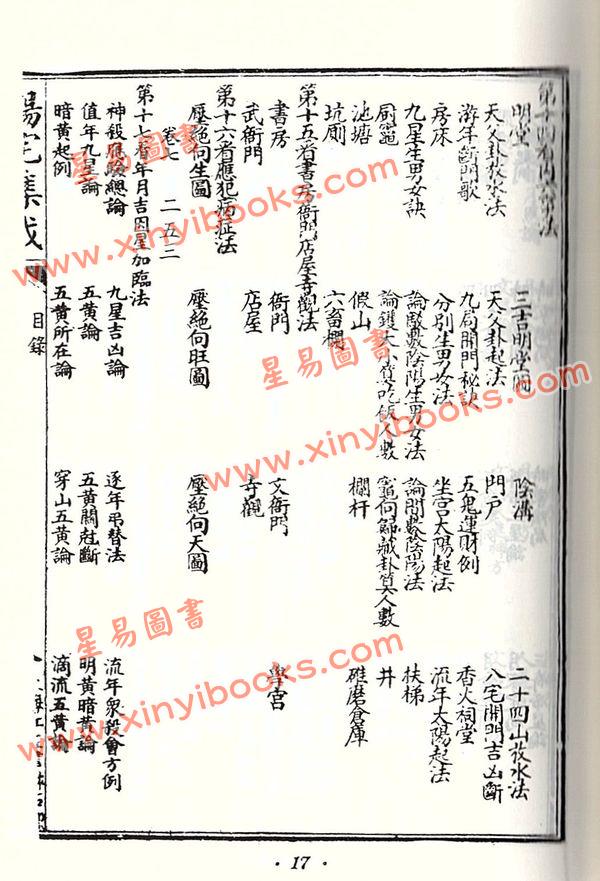 第十四看內六事法
明堂 三吉明堂圖 陰溝 二十四山放水法
天父卦放水法 天父卦起法 門戶 八宅開門吉凶斷
游年斷門歌 九局開門秘訣 五鬼運財例 香火祠堂
房床 分別生男女法 坐宮太陽起法 流年太陽起法
九星生男女訣 數陰陽生男女法 論間數陰陽法 扶梯
厨竈 論鑊大小算吃飯人數 竈向歸藏卦算人數 井
池塘 假山 欄杆 碓磨倉庫
坑厠 六畜欄
第十五看書房衙門店屋寺觀法
書房 衙門 文衙門 學宮
武衙門 店屋 寺觀
第十六看應犯病症法
壓絕向生圖 壓絕向旺圖 壓絕向天圖
卷七 二五三
第十七看年月吉凶星加臨法
神殺應驗總論 九星吉凶論 逐年吊替法 流年眾殺會方例
值年九星論 五黃論 五黃關尅斷 明黃暗黃論
暗黃起例 五黃所在論 穿山五黃論 滴流五黃論
陽宅集成 目錄
· 17 ·
星易圖書
www.xinyibooks.com
星易圖書
www.xinyibooks.com
星易圖書
www.xinyibooks.com